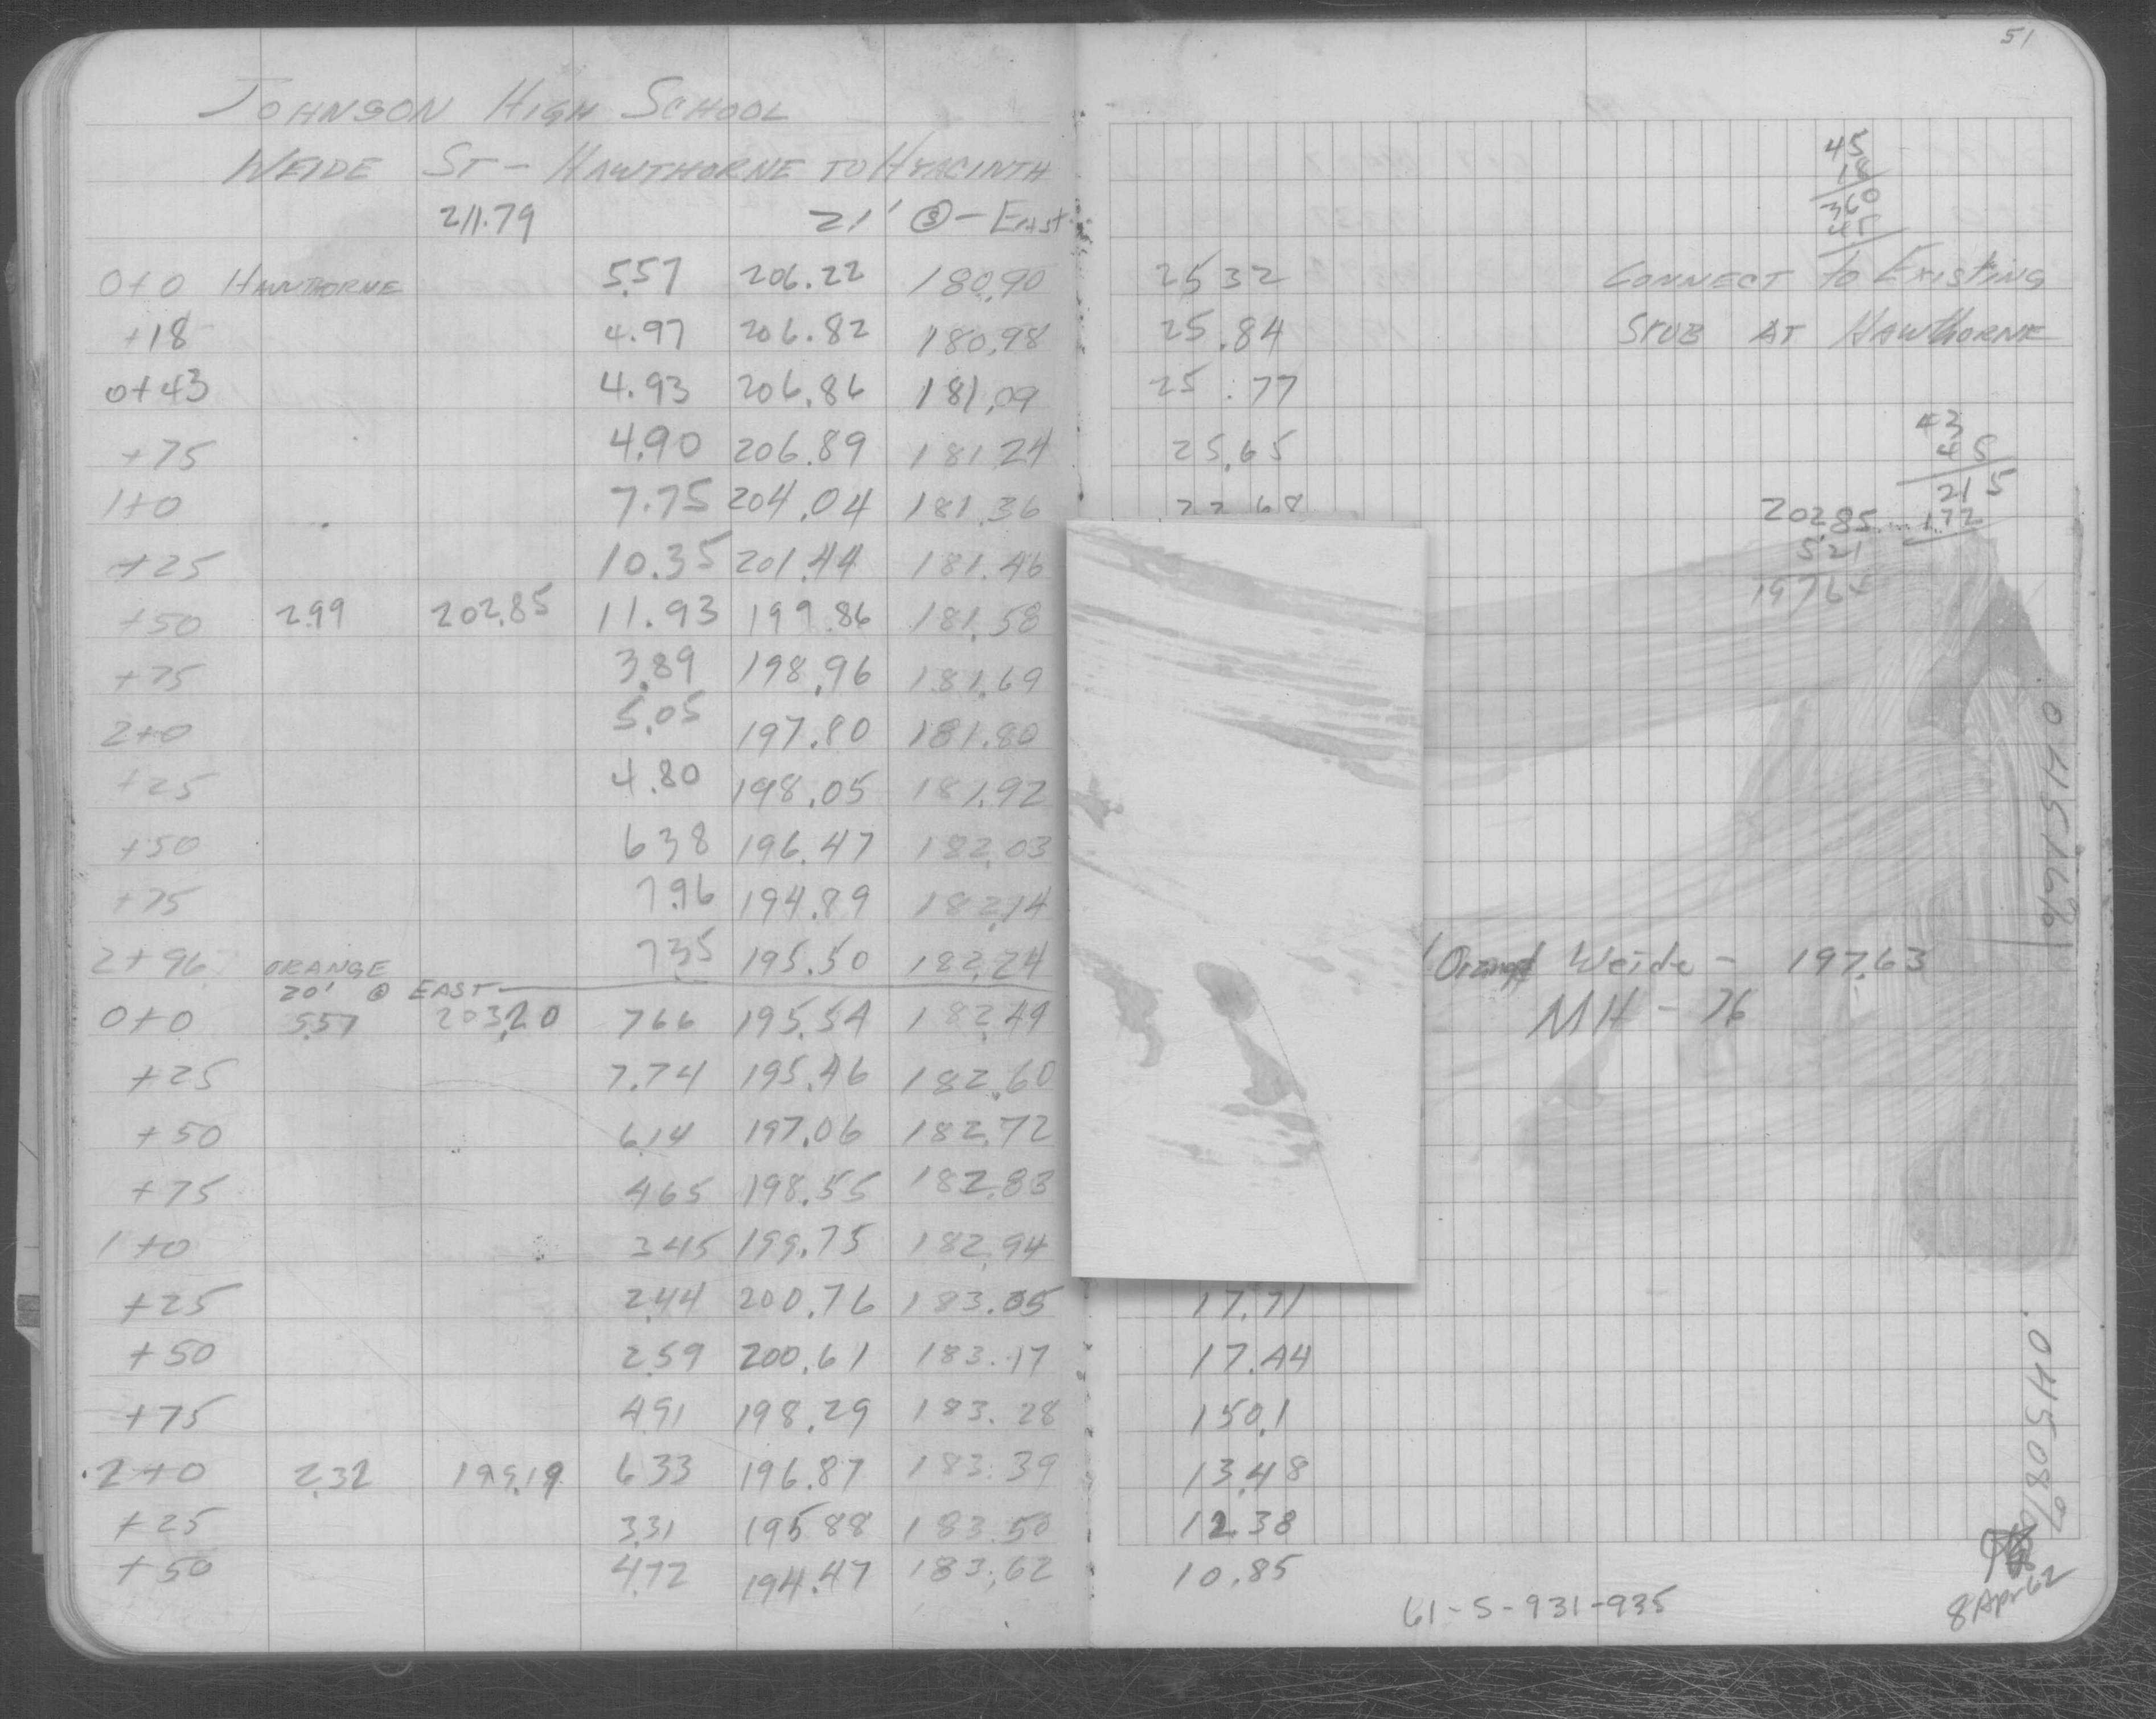 51
JOHNSON HIGH SCHOOL
WEIDE ST - HAWTHORNE TO HYACINTH
211.79 21' Ⓢ - EAST
45
18
360
45
0+0 HAWTHORNE 5.57 206.22 180.90 25 32 CONNECT TO EXISTING
+18 4.97 206.82 180.98 25.84 STUB AT HAWTHORNE
0+43 4.93 206.86 181.09 25.77
+75 4.90 206.89 181.24 25.65
43
45
215
172
1+0 7.75 204.04 181.36 22 68
202.85
5.21
197.64
+25 10.35 201.44 181.46
+50 2.99 202.85 11.93 199.86 181.58
+75 3.89 198.96 181.69
2+0 5.05 197.80 181.80
+25 4.80 198.05 181.92
+50 638 196.47 182.03
+75 7.96 194.89 182.14
2+96 ORANGE 7.35 195.50 182.24 Orange Weide - 197.63
20' @ EAST
0+0 5.57 203.20 766 195.54 182.49 MH - 76
+25 7.74 195.46 182.60
+50 6.14 197.06 182.72
+75 465 198.55 182.83
1+0 345 199.75 182.94
+25 2.44 200.76 183.05 17.71
+50 2.59 200.61 183.17 17.44
+75 491 198.29 183.28 150.1
2+0 2.32 199.19 6 33 196.87 183.39 13.48
+25 331 195 88 183.50 12.38
+50 4.72 194.47 183.62 10.85
61-S-931-935
8 Apr 62